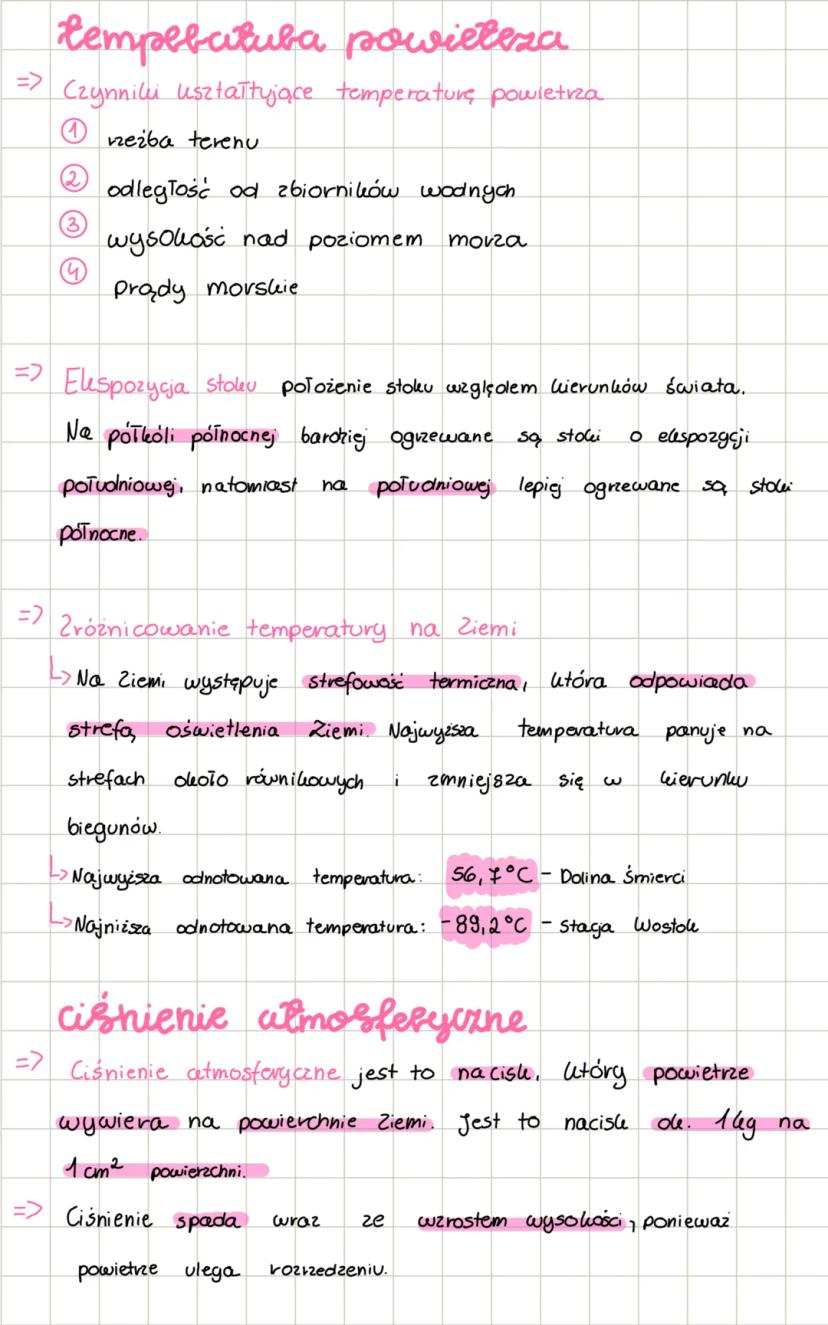 temperatura powietrza
=> Czynniki kształtujące temperaturę powietrza
1 rzeźba terenu
2 odległość od zbiorników wodnych
3 wysokość nad poziomem morza
4 prądy morskie
=> Ekspozycja stoku położenie stoku względem kierunków świata.
Na półkóli północnej bardziej ogrzewane są stoki o ekspozycji
południowej, natomiast na południowej lepiej ogrzewane są stoki
północne.
=> Zróżnicowanie temperatury na Ziemi
↳ Na Ziemi występuje strefowość termiczna, która odpowiada
strefą oświetlenia Ziemi. Najwyższa temperatura panuje na
strefach około równikowych i zmniejsza się w kierunku
biegunów.
↳ Najwyższa odnotowana temperatura: 56,7°C - Dolina Śmierci
↳ Najniższa odnotowana temperatura: -89,2°C - Stacja Wostok
ciśnienie atmosferyczne
=> Ciśnienie atmosferyczne jest to nacisk, który powietrze
wywiera na powierchnie Ziemi. Jest to nacisk ok. 1kg na
1 cm² powierzchni.
=> Ciśnienie spada wraz ze wzrostem wysokości, ponieważ
powietrze ulega rozrzedzeniu.